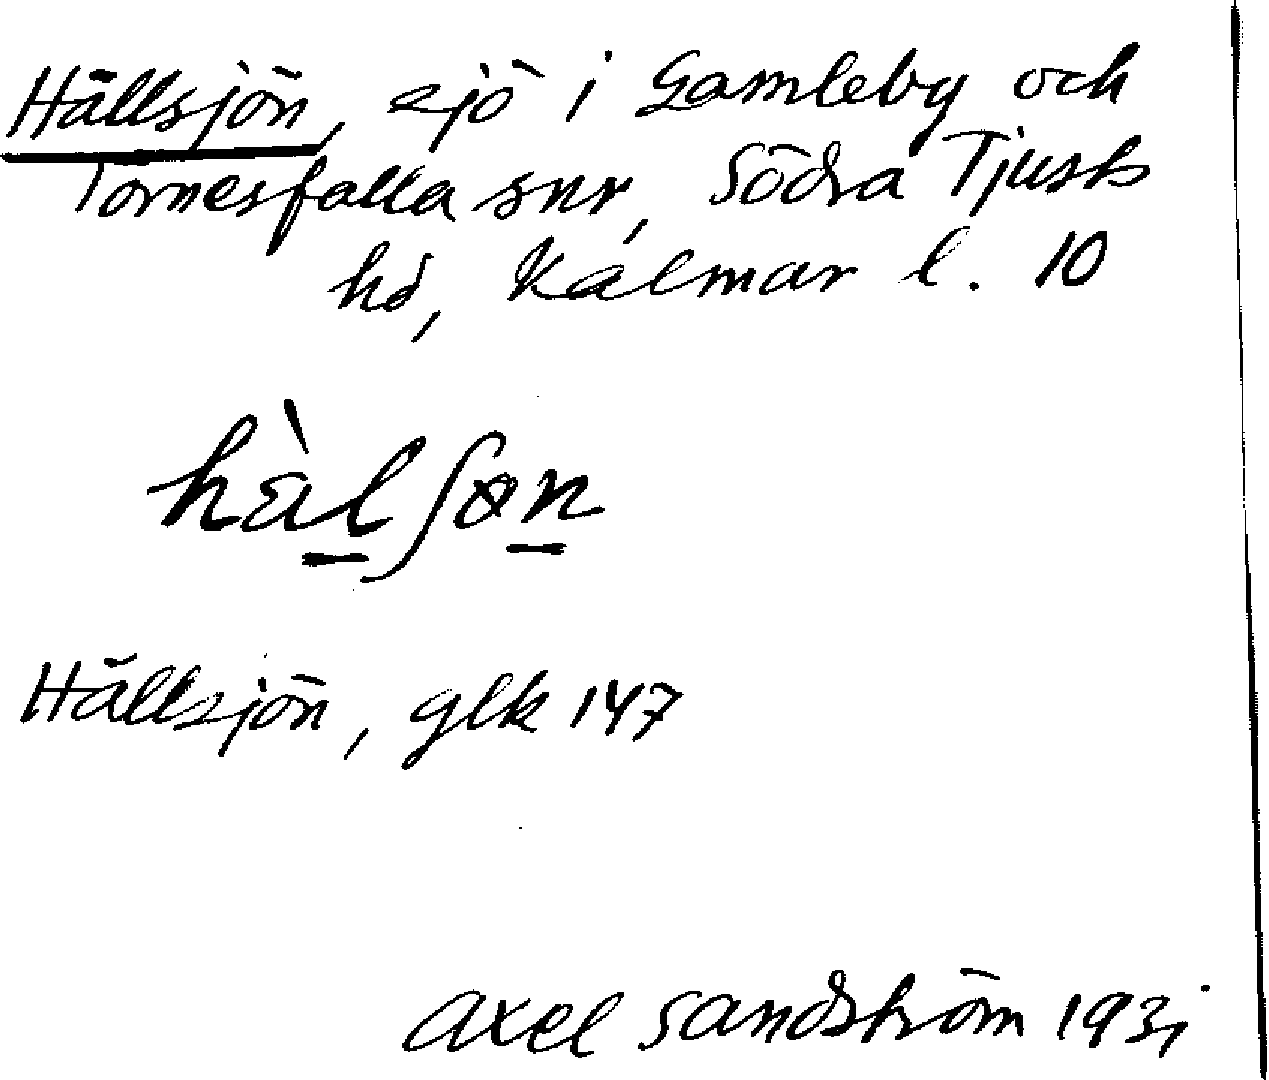 Hällsjön, sjö i Gamleby och
Törnesfalla snr, Södra Tjusts
hd, Kalmar l. 10
hä̀lʃøn
Hällsjön, glk 147
Axel Sandström 193